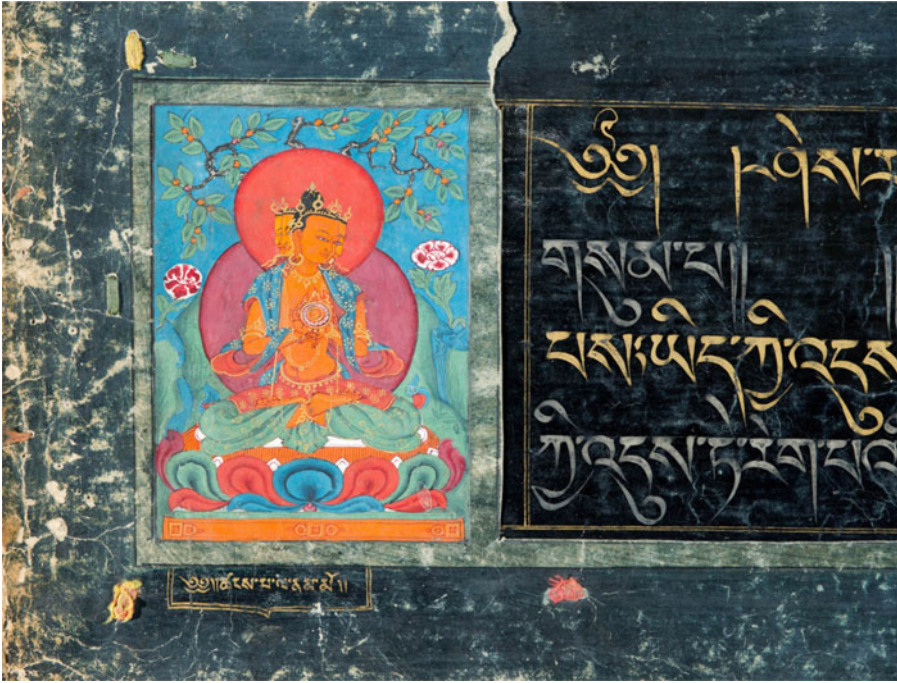 ༄༅། །ཤེས་ར
གསུམ་པ།། །།
པས་ཡིད་ཀྱི་འདུས
ཀྱི་འདུས་ཏེ་རེག་པའི
༄༅།།ཚངས་པ་ལ་ན་མ་མོ།།